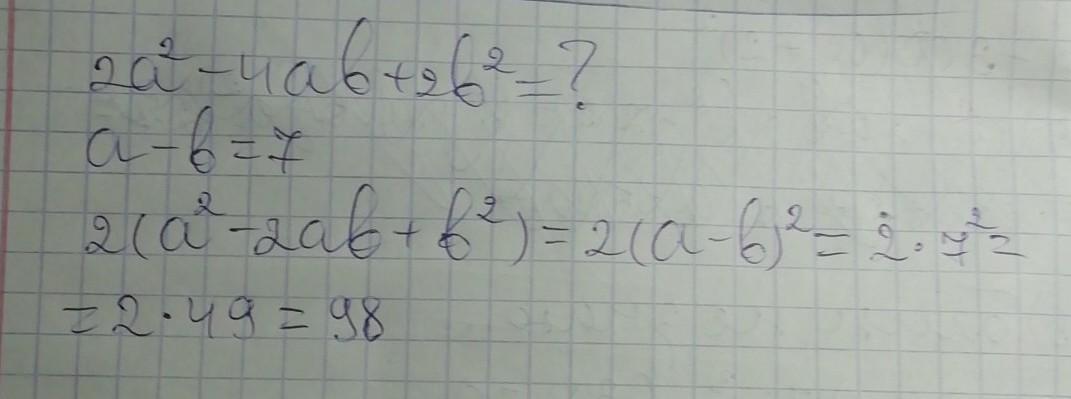 2a² - 4ab + 2b² = ?
a - b = 7
2(a² - 2ab + b²) = 2(a - b)² = 2 · 7² =
= 2 · 49 = 98